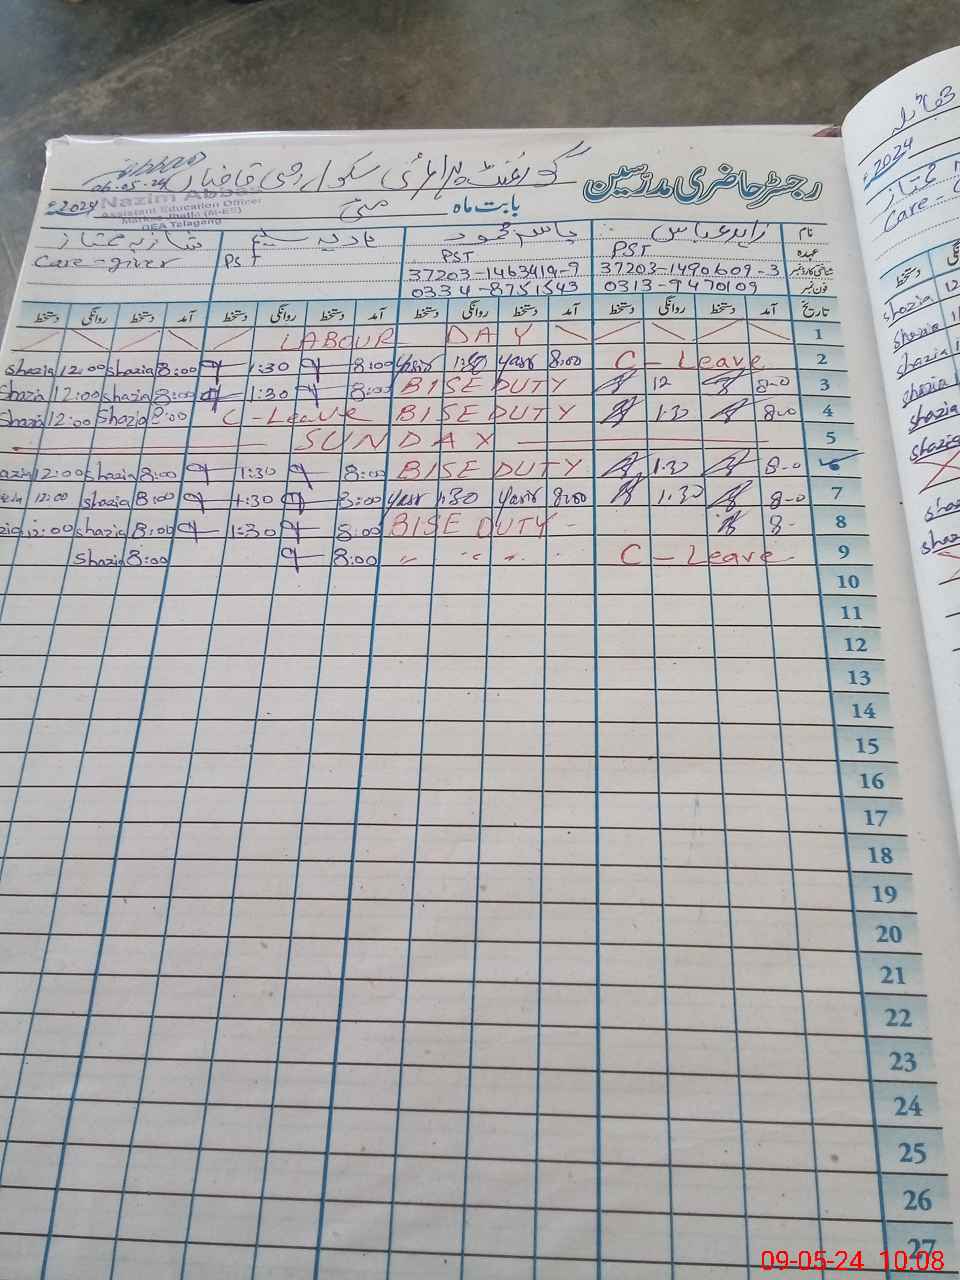 رجسٹر حاضری مدرسین گورنمنٹ پرائمری سکول
06-05-24
بابت ماہ مئی 2024ء
Nazim Abbas
Assistant Education Officer
DEA Talagang
نام زاہد عباس یاسر محمود نادیہ سلیم شازیہ ممتاز
عہدہ PST PST PST Care-giver
شناختی کارڈ نمبر 37203-1490609-3 37203-1463419-7
فون نمبر 0313-9470109 0334-8751543
تاریخ آمد دستخط روانگی دستخط آمد دستخط روانگی دستخط آمد دستخط روانگی دستخط آمد دستخط روانگی دستخط
1 LABOUR DAY
2 C-Leave 8:00 Yasir 1:30 Yasir 8:00 1:30 8:00 Shazia 12:00 Shazia
3 8-0 12 BISE DUTY 8:00 1:30 8:00 Shazia 12:00 Shazia
4 8-0 1.30 BISE DUTY C-Leave 8:00 Shazia 12:00 Shazia
5 SUNDAY
6 8-0 1.30 BISE DUTY 8:00 1:30 8:00 Shazia 12:00 Shazia
7 8-0 1.30 8:00 Yasir 1:30 Yasir 8:00 1:30 8:00 Shazia 12:00
8 8- BISE DUTY 8:00 1:30 8:00 Shazia 12:00
9 C-Leave 〃 〃 〃 8:00 8:00 Shazia
10
11
12
13
14
15
16
17
18
19
20
21
22
23
24
25
26
27
2024
Care
Shazia 12
Shazia
Shazia
Shazia
Shazia
Shazia
09-05-24 10:08